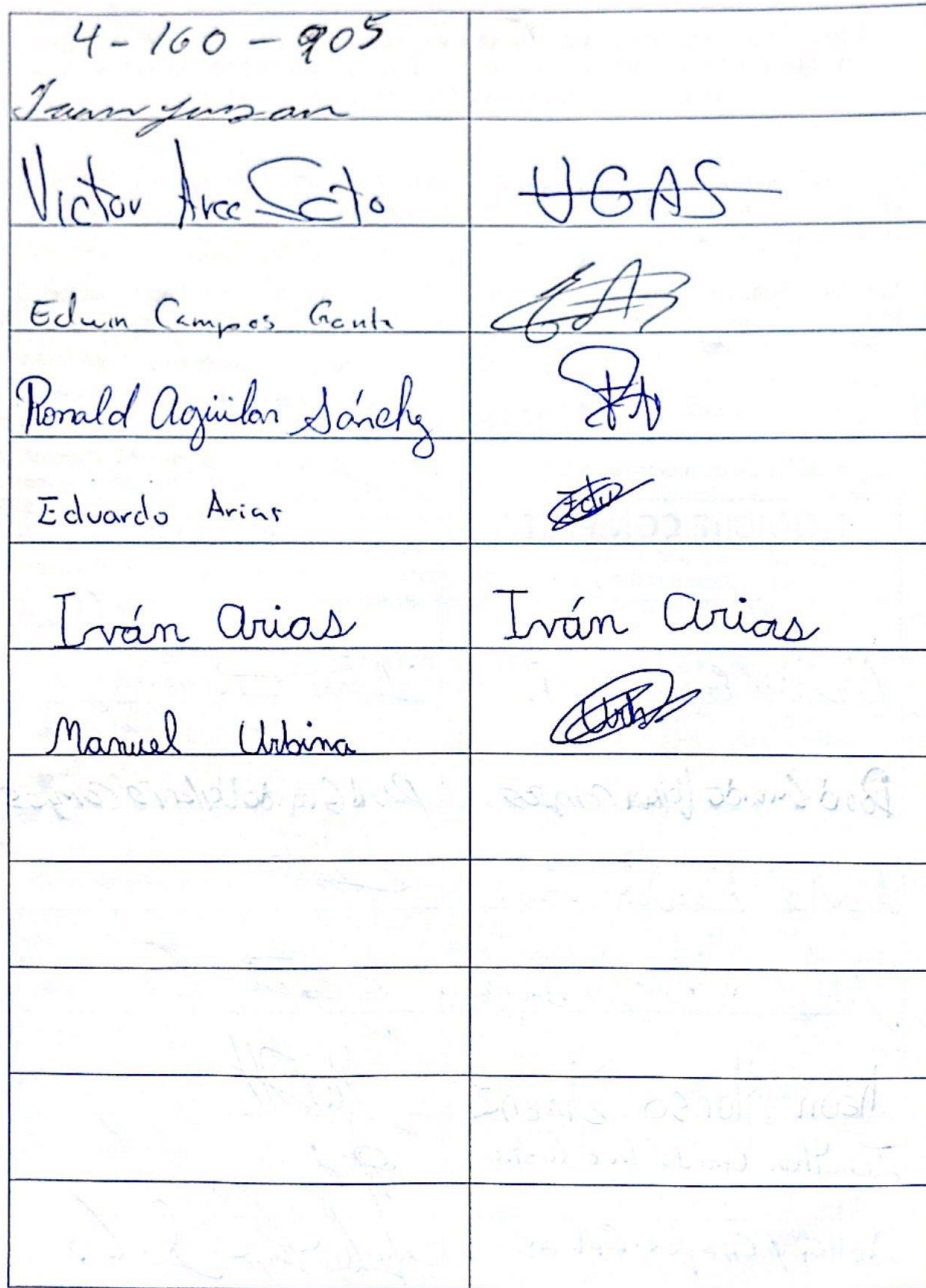 4-160-905
Victor Arce Soto UGAS
Edwin Campos
Ronald Agüilar Sánchz
Eduardo Arias Edu
Iván Arias Iván Arias
Manuel Urbina Urb